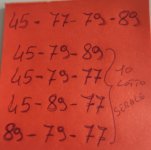 45 - 77 - 79 - 89
45 - 79 - 89
45 - 79 - 77
45 - 89 - 77
89 - 79 - 77
10
LOTTO
SERALE